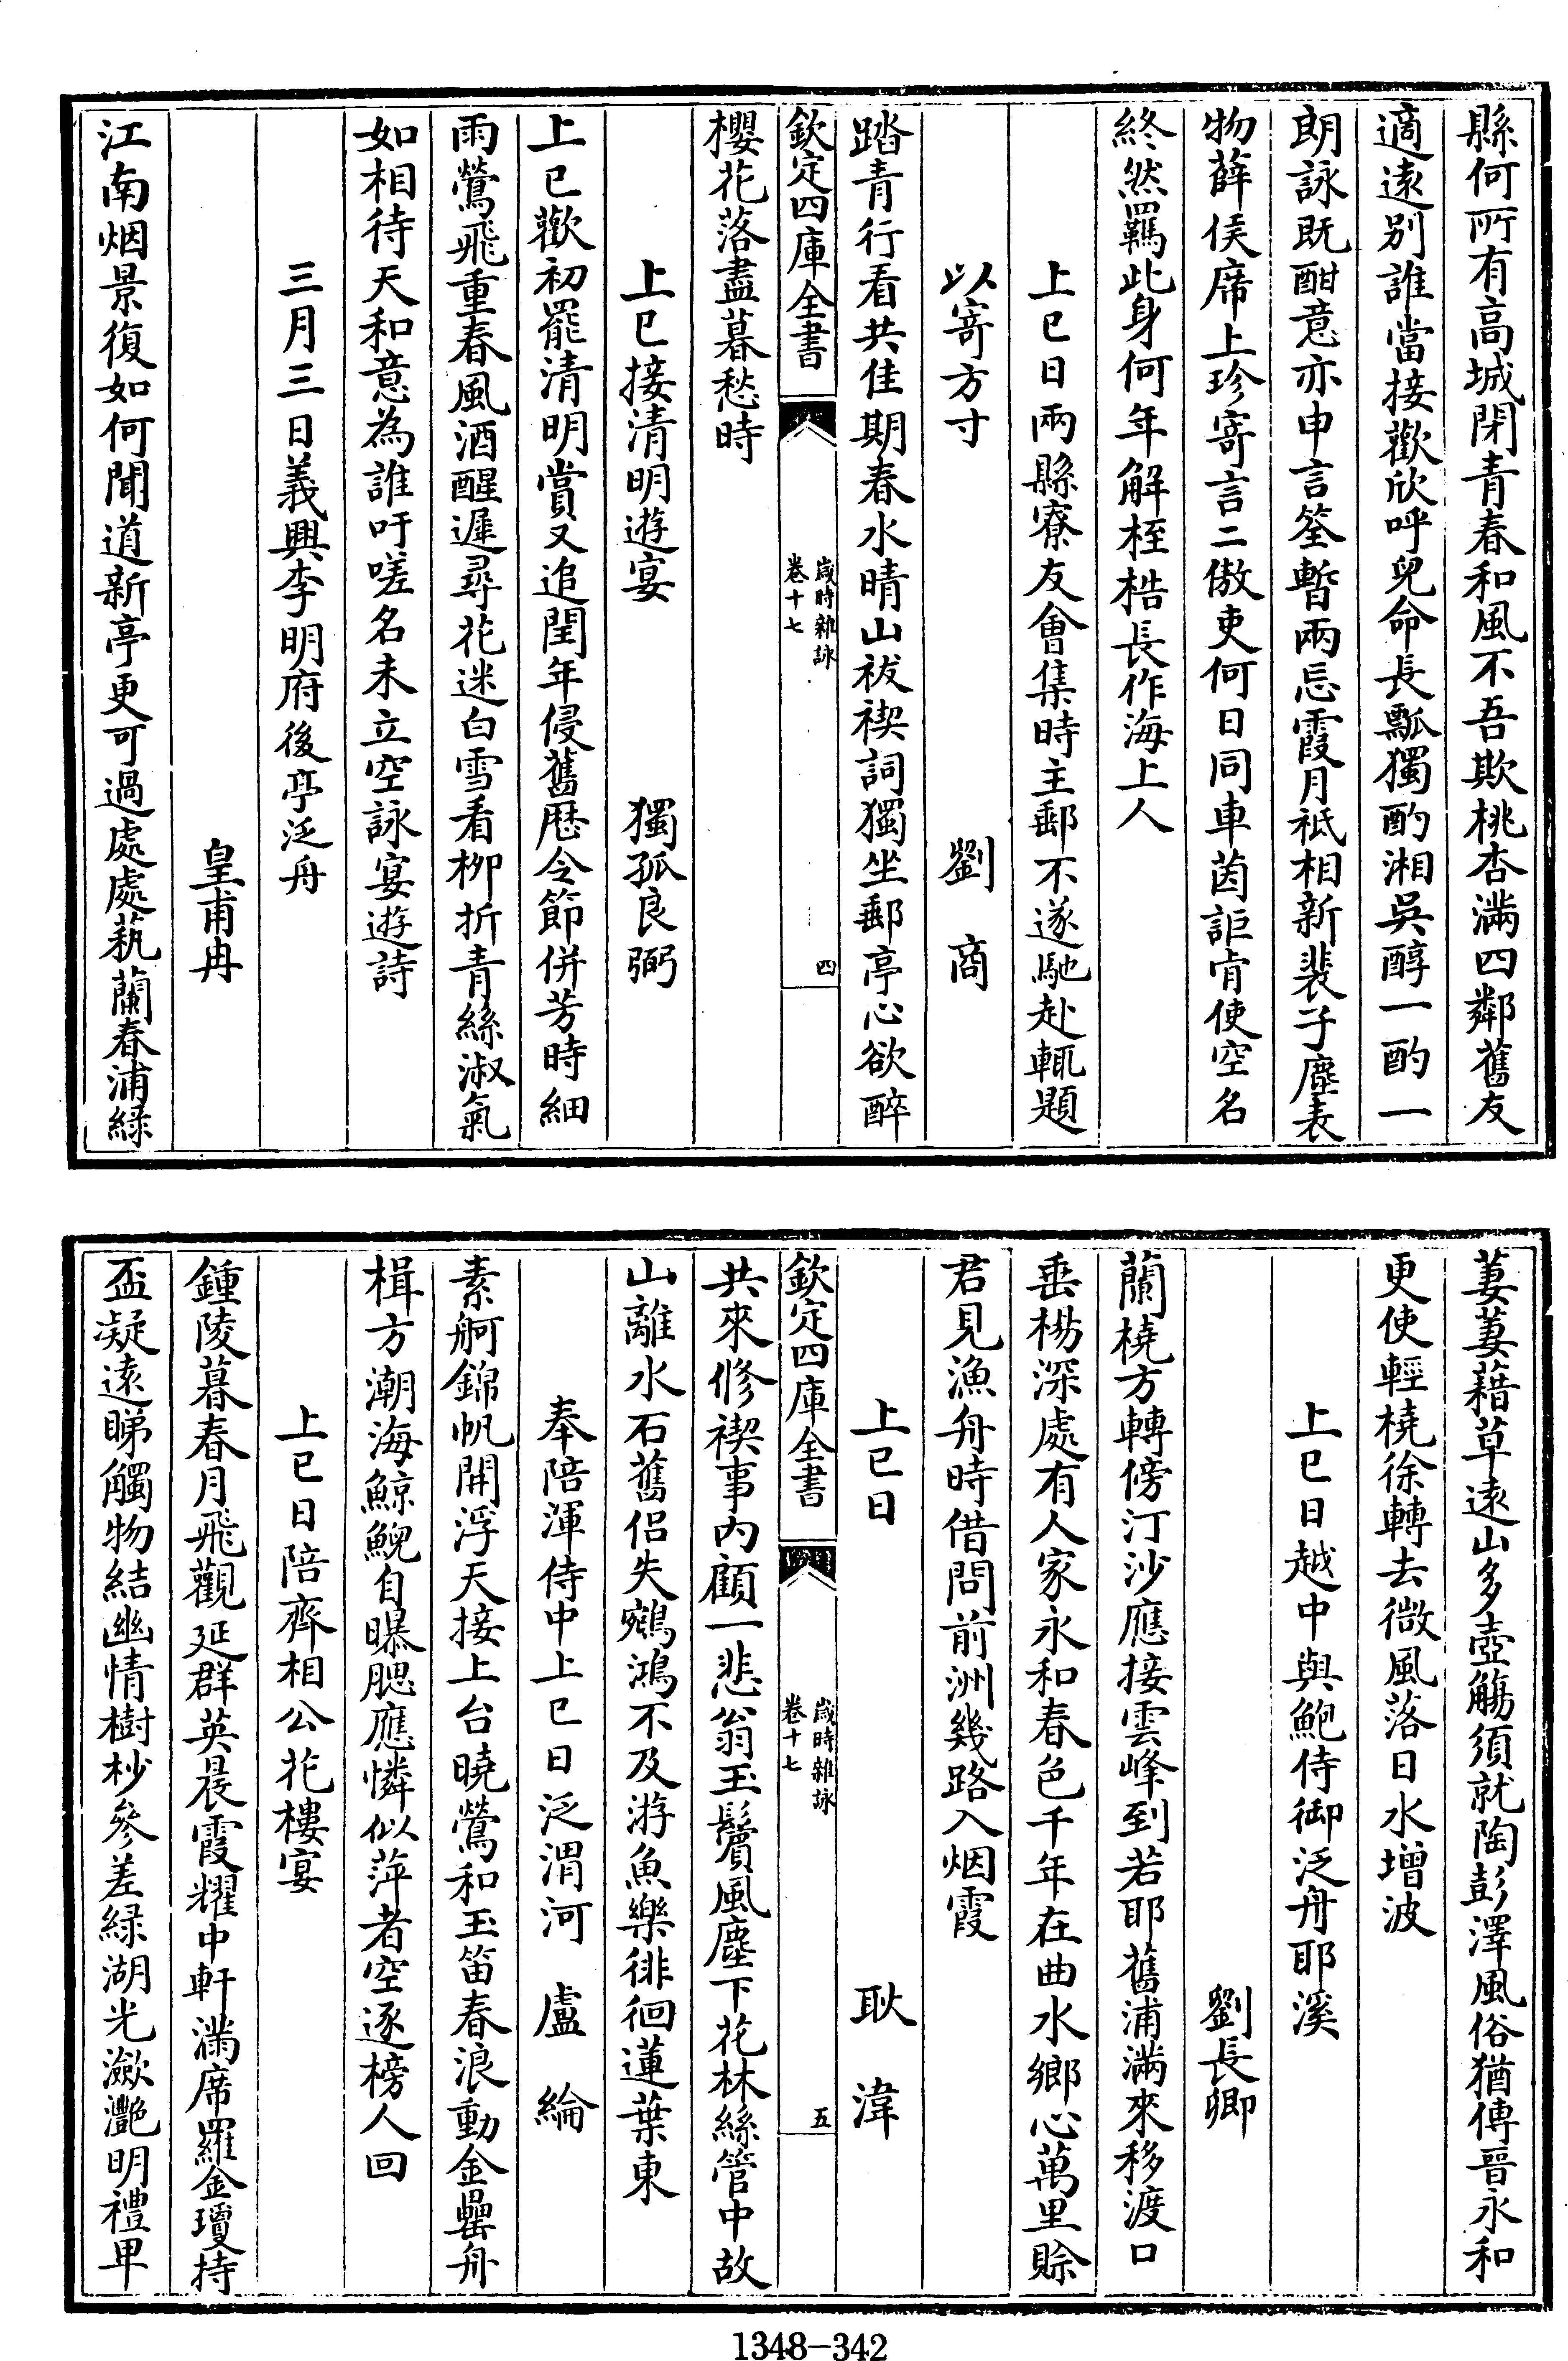 縣何所有高城閉青春和風不吾欺桃杏滿四鄰舊友
適遠別誰當接歡欣呼兒命長瓢獨酌湘吳醇一酌一
朗詠既酣意亦申言筌暫兩忘霞月祇相新裴子塵表
物薛侯席上珍寄言二傲吏何日同車茵詎肯使空名
終然羈此身何年解桎梏長作海上人
上巳日兩縣寮友會集時主郵不遂馳赴輒題
以寄方寸 劉商
踏青行看共佳期春水晴山祓禊詞獨坐郵亭心欲醉
欽定四庫全書 歲時雜詠 卷十七 四
櫻花落盡暮愁時
上巳接清明遊宴 獨孤良弼
上巳歡初罷清明賞又追閏年侵舊厯令節併芳時細
雨鶯飛重春風酒醒遲尋花迷白雪看柳折青絲淑氣
如相待天和意為誰吁嗟名未立空詠宴遊詩
三月三日義興李明府後亭泛舟
皇甫冉
江南烟景復如何聞道新亭更可過處處蓺蘭春浦綠
萋萋藉草遠山多壺觴須就陶彭澤風俗猶傳晉永和
更使輕橈徐轉去微風落日水增波
上巳日越中與鮑侍御泛舟耶溪
劉長卿
蘭橈方轉傍汀沙應接雲峰到若耶舊浦滿來移渡口
垂楊深處有人家永和春色千年在曲水鄉心萬里賒
君見漁舟時借問前洲幾路入烟霞
上巳日 耿湋
欽定四庫全書 歲時雜詠 卷十七 五
共來修禊事內顧一悲翁玉鬢風塵下花林絲管中故
山離水石舊侶失鵷鴻不及游魚樂徘徊蓮葉東
奉陪渾侍中上巳日泛渭河 盧綸
素舸錦帆開浮天接上台曉鶯和玉笛春浪動金罍舟
楫方潮海鯨鯢自曝腮應憐似萍者空逐榜人回
上巳日陪齊相公花樓宴
鍾陵暮春月飛觀延群英晨霞耀中軒滿席羅金瓊持
盃凝遠睇觸物結幽情樹杪參差綠湖光瀲灩明禮卑
1348-342